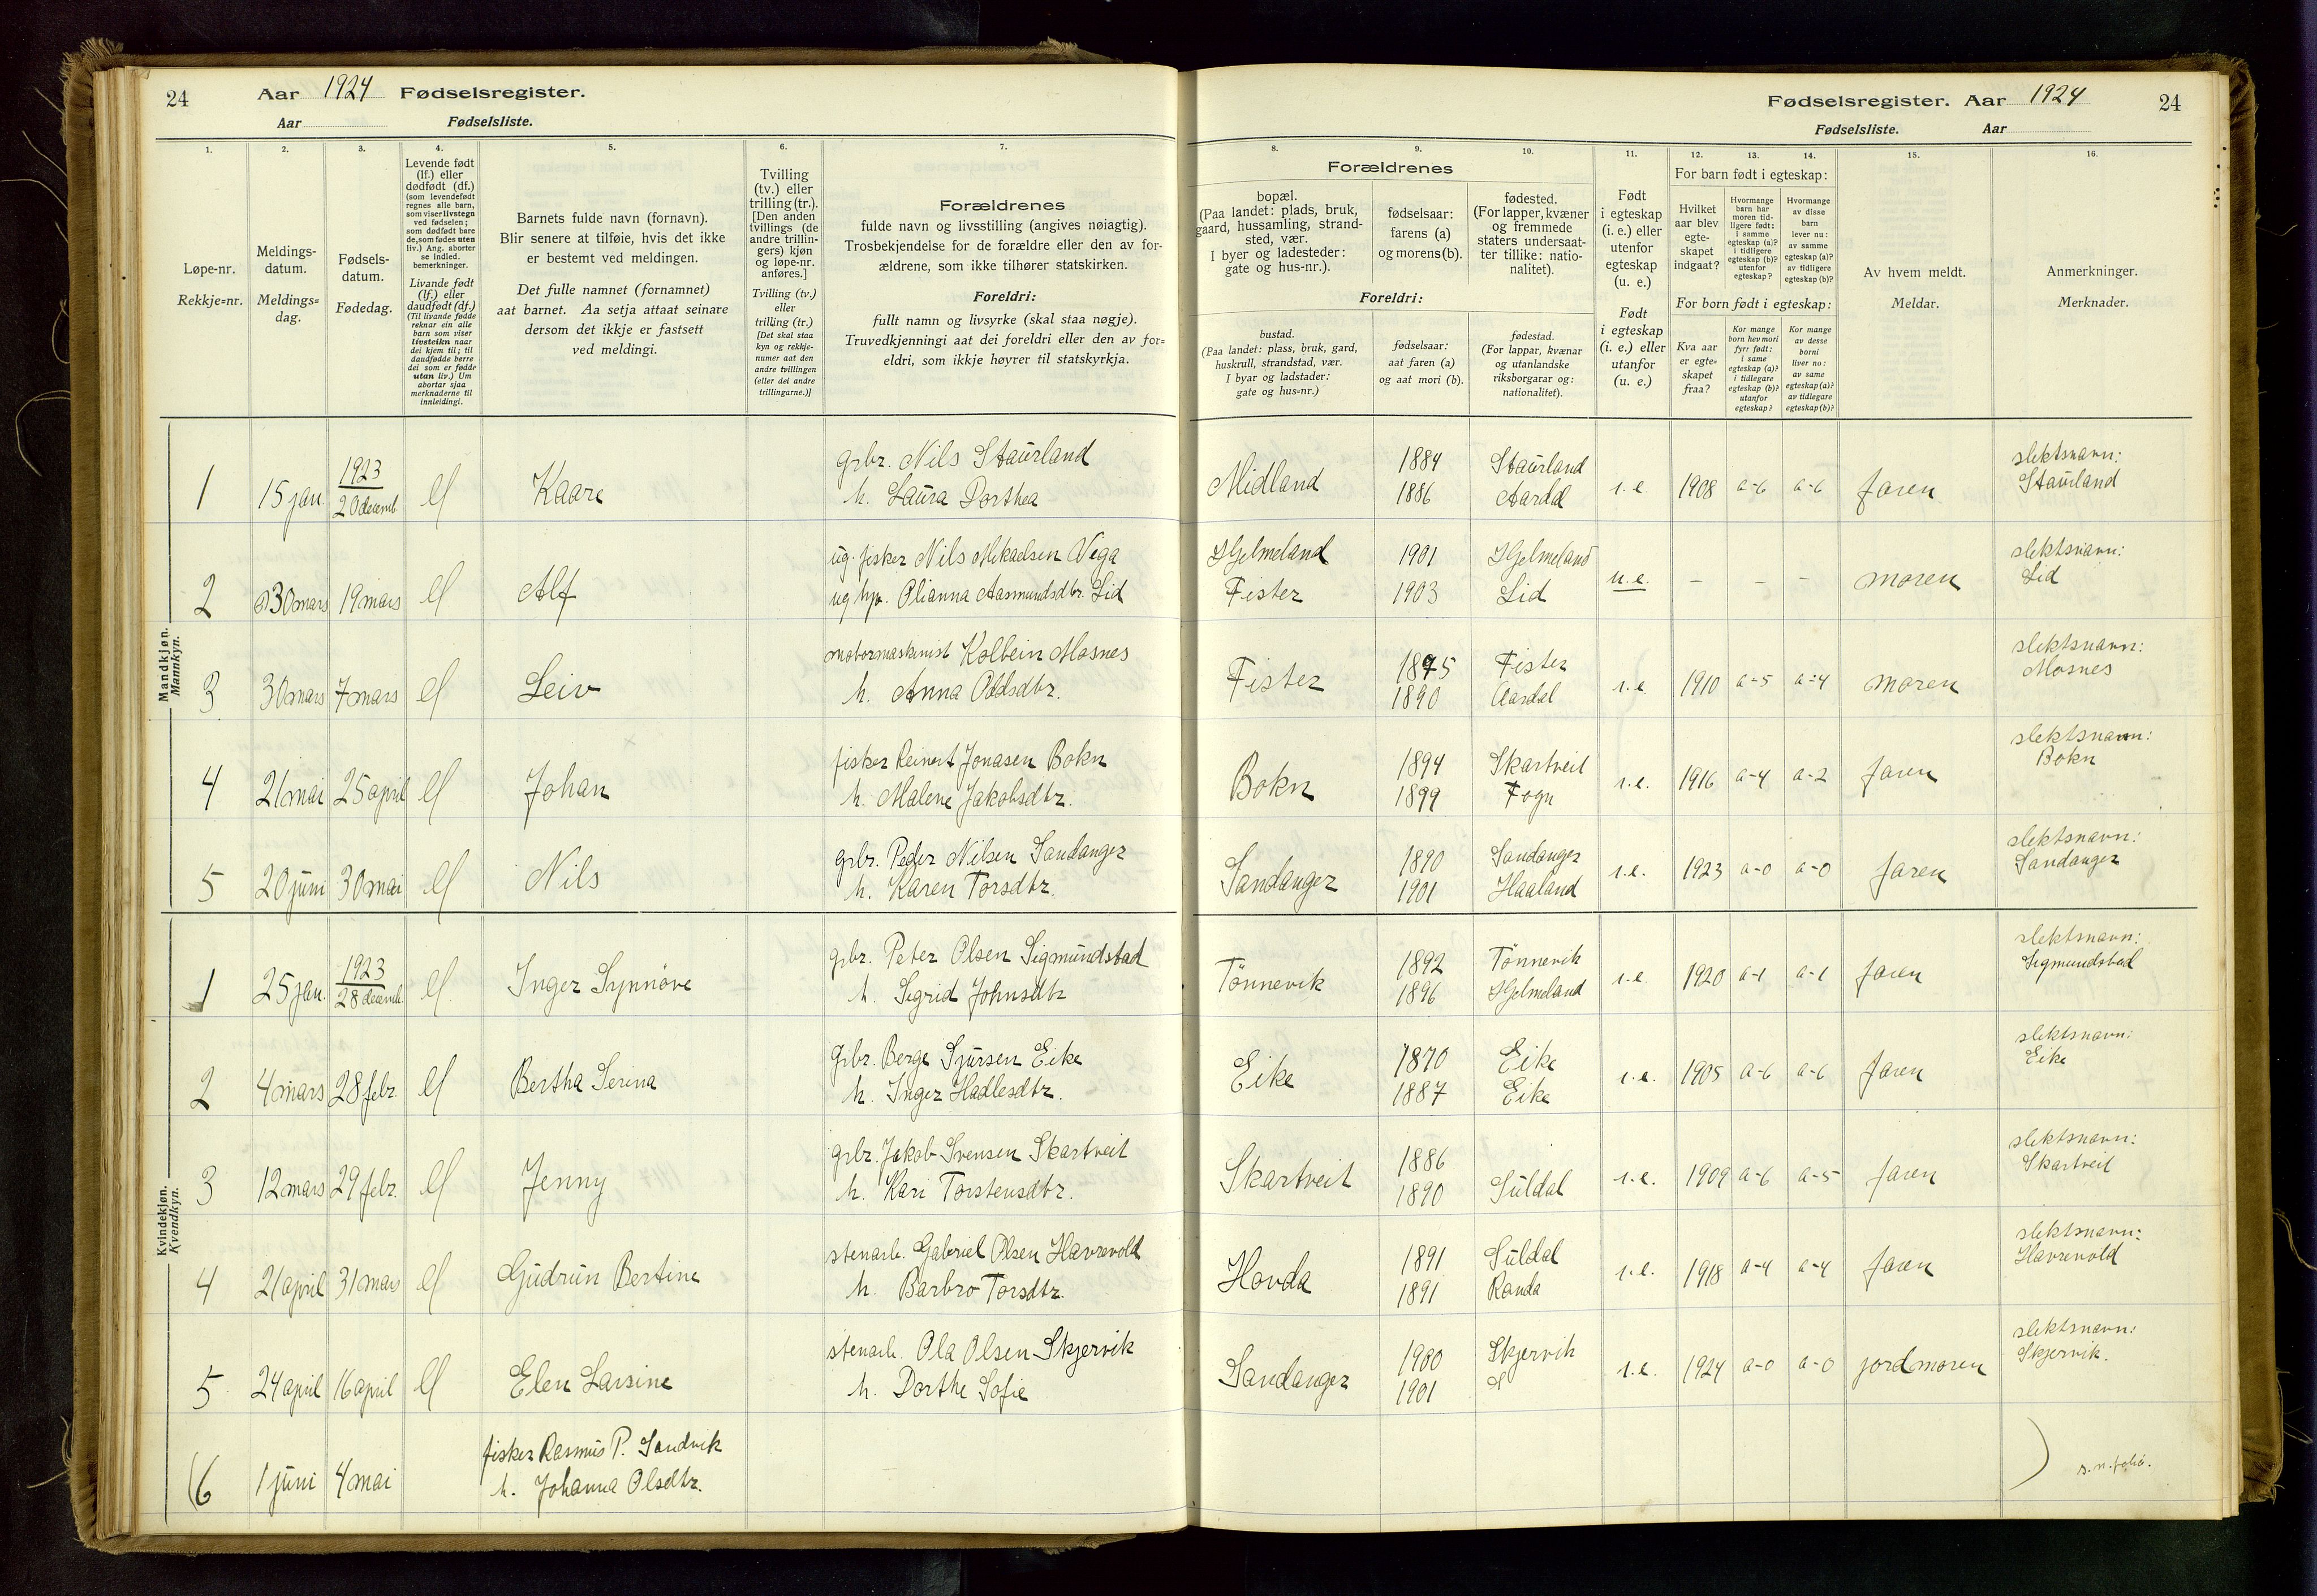 24 Aar 1924 Fødselsregister.
Aar Fødselsliste.
Fødselsregister. Aar 1924 24
Fødselsliste. Aar
1. 2. 3. 4. 5. 6. 7.
Løpe-nr.
Rekkje=nr.
Meldings-
datum.
Meldings=
dag.
Fødsels-
datum.
Fødedag.
Levende født
(lf.) eller
dødfødt (df.)
(som levendefødt
regnes alle barn,
som viser livstegn
ved fødselen;
som dødfødt bare
de, som fødes uten
liv.) Ang. aborter
se indled.
bemerkninger.
Livande født
(lf.) eller
daudfødt (df.)
(Til livande fødde
reknar ein alle
barn som viser
livsteikn naar
dei kjem til; til
daudfødde berre
dei som er fødde
utan liv.) Um
abortar sjaa
merknaderne til
innleidingi.
Barnets fulde navn (fornavn).
Blir senere at tilføie, hvis det ikke
er bestemt ved meldingen.
Det fulle namnet (fornamnet)
aat barnet. Aa setja attaat seinare
dersom det ikkje er fastsett
ved meldingi.
Tvilling
(tv.) eller
trilling (tr.).
[Den anden
tvillings (de
andre trillin-
gers) kjøn
og løpe-nr.
anføres.]
Tvilling (tv.)
eller
trilling (tr.)
[Det skal staa
kyn og rekkje-
numer aat den
andre tvillingen
(eller dei andre
trillingarne.)]
Forældrenes
fulde navn og livsstilling (angives nøiagtig).
Trosbekjendelse for de forældre eller den av for-
ældrene, som ikke tilhører statskirken.
Foreldri:
fullt namn og livsyrke (skal staa nøgje).
Truvedkjenningi aat dei foreldri eller den av for=
eldri, som ikkje høyrer til statskyrkja.
8. 9. 10. 11. 12. 13. 14. 15. 16.
Forældrenes
bopæl.
(Paa landet: plads, bruk,
gaard, hussamling, strand-
sted, vær.
I byer og ladesteder:
gate og hus-nr.).
fødselsaar:
farens (a)
og morens (b).
fødested.
(For lapper, kvæner
og fremmede
staters undersaat-
ter tillike: natio-
nalitet).
Foreldri:
bustad.
(Paa landet: plass, bruk, gard,
huskrull, strandstad, vær.
I byar og ladstader:
gate og hus=nr.)
fødselsaar:
aat faren (a)
og aat mori (b).
fødestad.
(For lappar, kvænar
og utanlandske
riksborgarar og:
nationalitet).
Født
i egteskap
(i. e.) eller
utenfor
egteskap
(u. e.)
Født
i egteskap
(i. e.) eller
utanfor
(u. e.)
For barn født i egteskap:
Hvilket
aar blev
egte-
skapet
indgaat?
Hvormange
barn har
moren tid-
ligere født:
i samme
egteskap (a)?
i tidligere
egteskap (b)?
utenfor
egteskap?
Hvormange
av disse
barn
lever nu:
av samme
egteskap (a)?
av tidligere
egteskap (b)?
For born født i egteskap:
Kva aar
er egte=
skapet
fraa?
Kor mange
born hev mori
fyrr født:
i same
egteskap (a)?
i tidlegare
egteskap (b)?
utanfor
egteskap?
Kor mange
av desse
borni
liver no:
av same
egteskap (a)?
av tidlegare
egteskap (b)?
Av hvem meldt.
Meldar.
Anmerkninger.
Merknader.
Mandkjøn.
Mannkyn.
1 15 jan. 1923 20 decemb. lf Kaare grbr. Nils Staurland
h. Laura Dorthea
Midland 1884 Staurland i. e. 1908 a-6 a-6 faren slektsnavn:
1886 Aardal Staurland
2 30 mars 19 mars lf Alf ug. fisker Nils Mikaelsen Vega
ug hjv. Olianna Aasmundsdtr. Lid
Hjelmeland 1901 Hjelmeland u.e. – – – moren slektsnavn:
Fister 1903 Lid Lid
3 30 mars 7 mars lf Leiv motormaskinist Kolbein Mosnes
h. Anna Oddsdtr.
Fister 1875 Fister i.e. 1910 a-5 a-4 moren slektsnavn:
1890 Aardal Mosnes
4 21 mai 25 april lf Johan fisker Reinert Jonasen Bokn
h. Malene Jakobsdtr.
Bokn 1894 Skartveit i.e. 1916 a-4 a-2 faren slektsnavn:
1899 Fogn Bokn
5 20 juni 30 mai lf Nils grbr. Peder Nilsen Sandanger
h. Karen Torsdtr.
Sandanger 1890 Sandanger i.e. 1923 a-0 a-0 faren slektsnavn:
1901 Haaland Sandanger
Kvindekjøn.
Kvendkyn.
1 25 jan. 1923 28 decemb. lf Inger Synnøve grbr. Peter Olsen Sigmundstad
h. Sigrid Johnsdtr
Tønnevik 1892 Tønnevik i.e. 1920 a-1 a-1 faren slektsnavn:
1896 Hjelmeland Sigmundstad
2 4 mars 28 febr. lf Bertha Serina grbr. Berge Sjursen Eike
h. Inger Hadlesdtr.
Eike 1870 Eike i.e. 1905 a-6 a-6 faren slektsnavn:
1887 Eike Eike
3 12 mars 29 febr. lf Jenny grbr. Jakob Svensen Skartveit
h. Kari Torstensdtr.
Skartveit 1886 i.e. 1909 a-6 a-5 faren slektsnavn:
1890 Suldal Skartveit
4 21 april 31 mars lf Gudrun Bertine stenarb. Gabriel Olsen Havrevold
h. Barbro Torsdtr.
Hovda 1891 Suldal i.e. 1918 a-4 a-4 faren slektsnavn:
1891 Randa Havrevold
5 24 april 16 april lf Elen Larsine stenarb. Ola Olsen Skjervik
h. Dorthe Sofie
Sandanger 1900 Skjervik i.e. 1924 a-0 a-0 jordmoren slektsnavn:
1901 S Skjervik.
6 1 juni 4 mai fisker Rasmus P. Sandvik
h. Johanna Olsdtr.
s. n. folio.